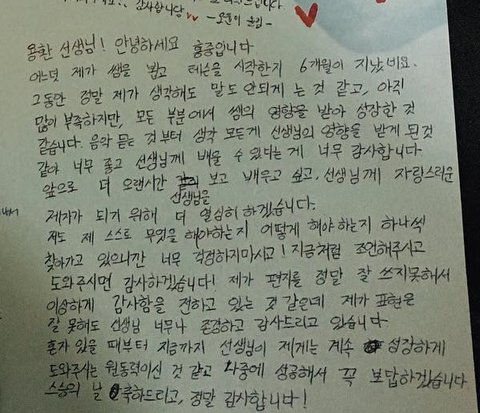 감사합니당
용환 선생님! 안녕하세요 홍종입니다
어느덧 제가 쌤을 뵙고 레슨을 시작한지 6개월이 지났네요.
그동안 정말 제가 생각해도 말도 안되게 는 것 같고, 아직
많이 부족하지만, 모든 부분에서 쌤의 영향을 받아 성장한 것
같습니다. 음악 듣는 것부터 생각 모든게 선생님의 영향을 받게 된것
같아 너무 좋고 선생님께 배울 수 있다는게 너무 감사합니다
앞으로 더 오랜시간 보고 배우고 싶고, 선생님께 자랑스러운
선생님을
제자가 되기 위해 더 열심히 하겠습니다.
저도 제 스스로 무엇을 해야하는지 어떻게 해야 하는지 하나씩
찾아가고 있으니깐 너무 걱정하지마시고! 지금처럼 조언해주시고
도와주시면 감사하겠습니다! 제가 편지를 정말 잘 쓰지못해서
이상하게 감사함을 전하고 있는 것 같은데 제가 표현은
잘 못해도 선생님 너무나 존경하고 감사드리고 있습니다.
혼자 있을 때부터 지금까지 선생님이 제게는 계속 성장하게
도와주시는 원동력이신 것 같고 나중에 성공해서 꼭 보답하겠습니다
스승의 날 축하드리고, 정말 감사합니다!